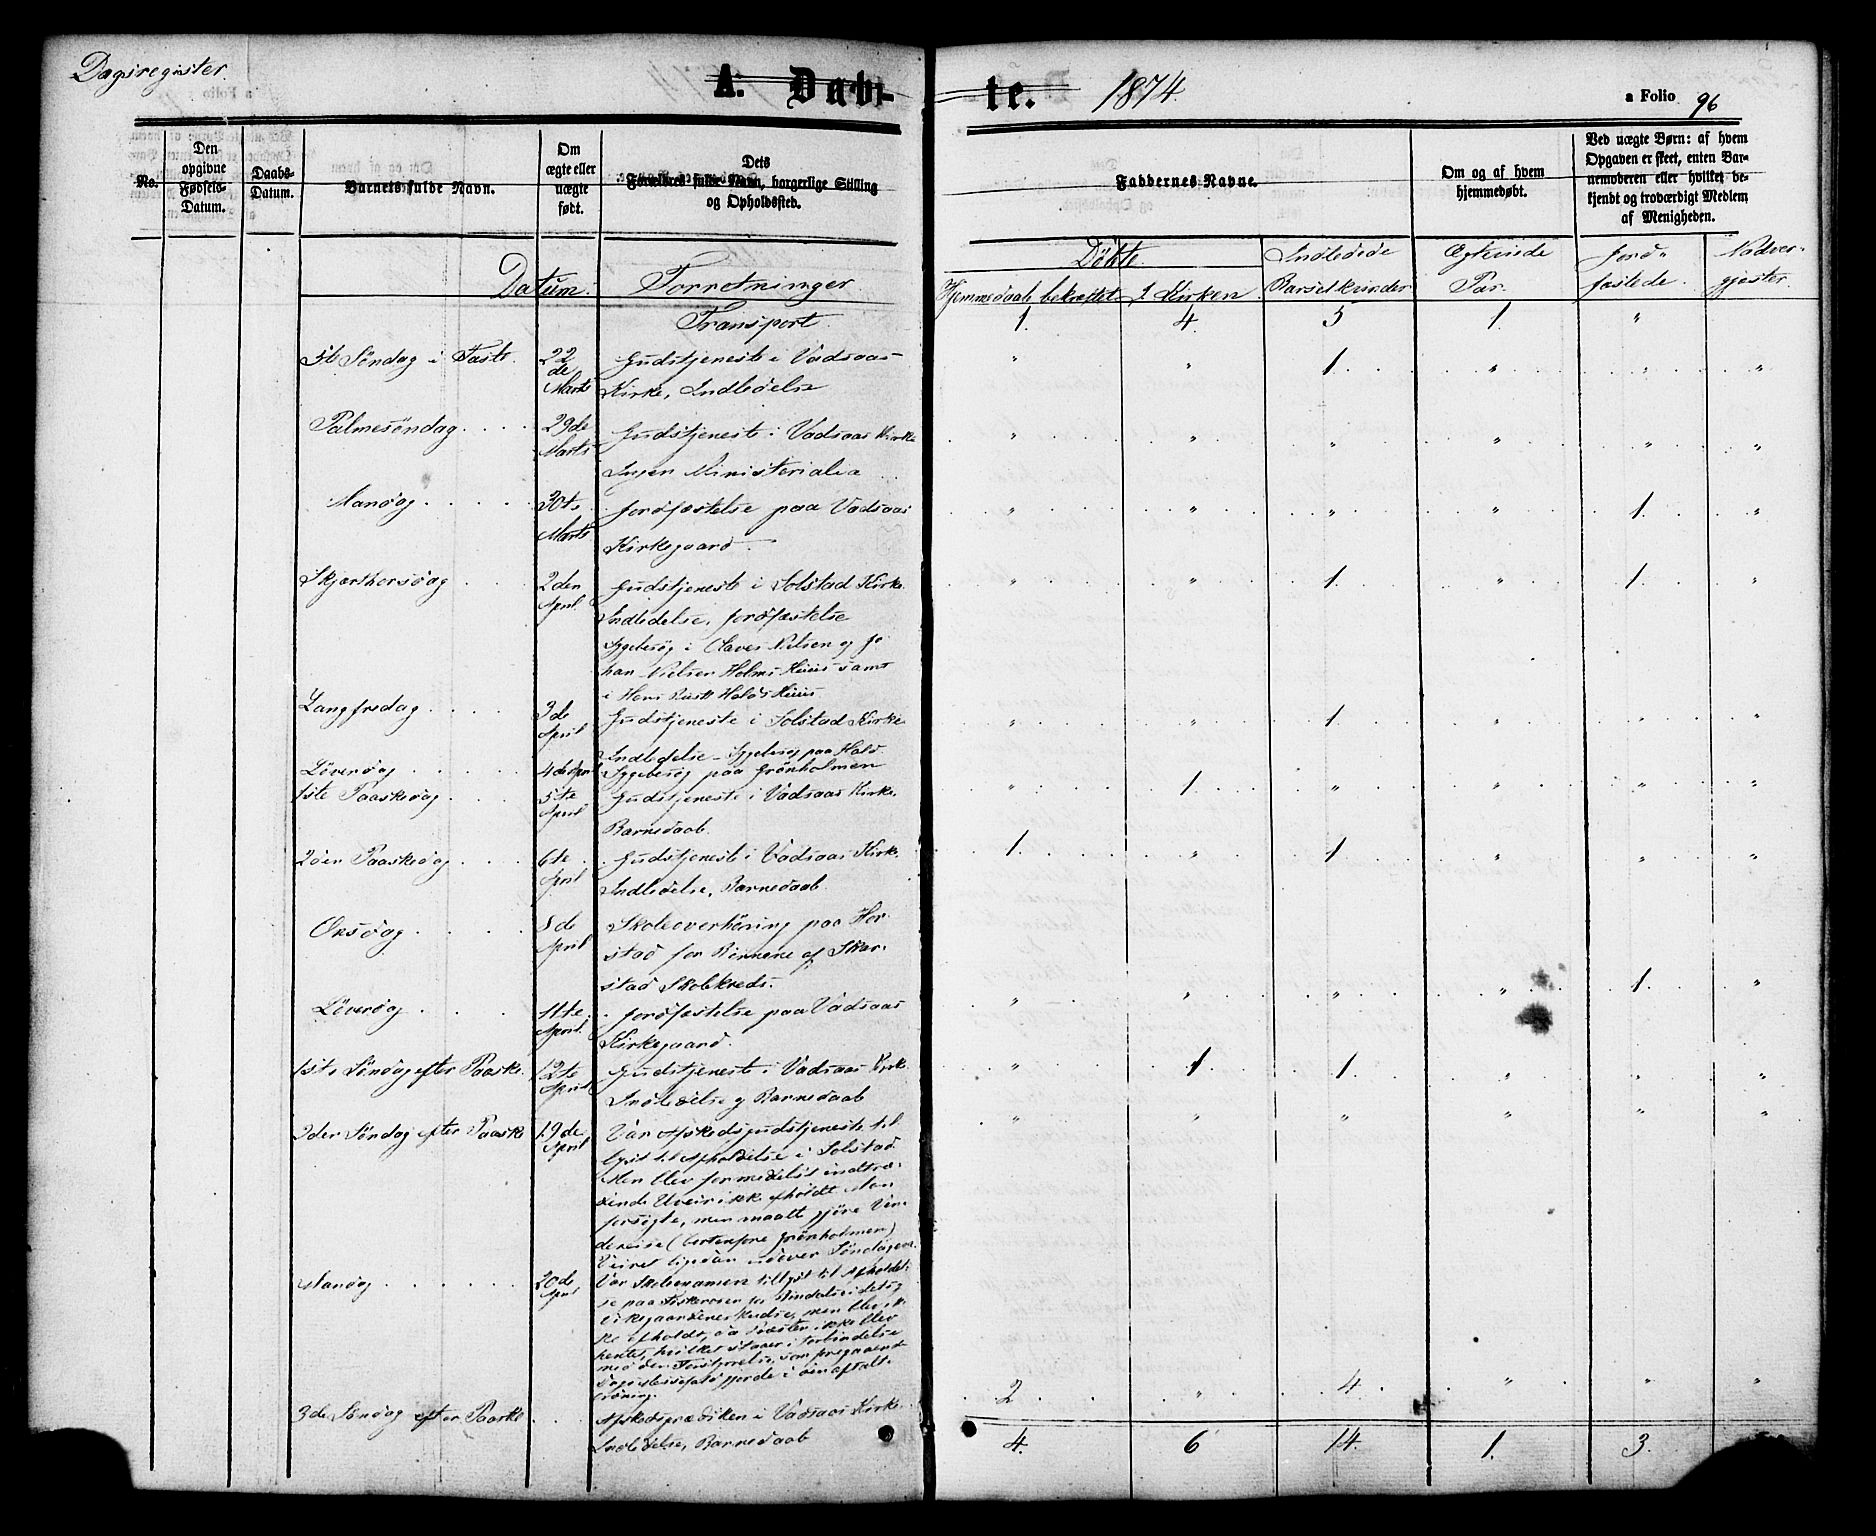 Dagsregister.
A. Døb-
te. 1874.
a Folio 96
No.
Den opgivne Fødsels-Datum.
Daabs-Datum.
Barnets fulde Navn.
Om ægte eller uægte født.
Dets Forældres fulde Navn, borgerlige Stilling og Opholdssted.
Faddernes Navne.
Om og af hvem hjemmedøbt.
Ved uægte Børn: af hvem Opgaven er skeet, enten Barnemoderen eller hvilket bekjendt og troværdigt Medlem af Menigheden.
Datum. Forretninger
Døbte
Hjemmedaab bekræftet I Kirken
Indledede Barselkvinder
Egteviede Par.
Jord-fæstede.
Nadver-gjester.
Transport. 1. 4. 5 1. "
5te Søndag i Faste. 22de Marts Gudstjeneste i Vadsaas " " 1. " " "
Kirke, Indledelse
Palmesøndag. 29de Marts Gudstjeneste i Vadsaas Kirke " " " " " "
Ingen Ministerialia
Mandag 30te Marts Jordfæstelse paa Vadsaas " " " " 1. "
Kirkegaard.
Skjærthorsdag 2den April Gudstjeneste i Solstad Kirke. " " 1. " 1. "
Indledelse, Jordfæstelse
Sygebesøg i Claves Nilsen og Jo-
han Nielsen Holms Huus samt
i Hans Huus
Langfredag 3de April Gudstjeneste i Solstad Kirke " " 1 " " "
Indledelse - Sygebesøg paa Hald
Løverdag 4de April Sygebesøg paa Grønholmen
1ste Paaskedag 5te April Gudstjeneste i Vadsaas Kirke. " 1. " " " "
Barnedaab.
2den Paaskedag 6te April Gudstjeneste i Vadsaas Kirke. 1. " 1 " " "
Indledelse, Barnedaab
Onsdag 8de April Skoleoverhøring paa Hor-
stad for Børnene af Skar-
stad Skolekreds.
Løverdag 11te April Jordfæstelse paa Vadsaas " " " " 1. "
Kirkegaard.
1ste Søndag efter Paaske. 12te April Gudstjeneste i Vadsaas Kirke " 1 1. " " "
Indledelse og Barnedaab
2den Søndag efter Paaske 19de April Var Afskedsgudstjeneste til- " " " " " "
lyst til Afholdelse i Solstad
Men blev formedelst indtræ-
dende Uveir ikke afholdt Man
forsøgte, men maatte gjøre Ven-
dereise (bortenfore Grønholmen)
Veiret ligedan udover Søndagen.
Mandag 20de April Var Skoleexamen tillyst til Afholdel-
se paa
men blev ik-
ke afholdt, da Præsten ikke blev
hentet, hvilket staaer i Forbindelse
med den Forstyrrelse, som foregaaende
Dags gjorde i den aftalte
Ordning.
3de Søndag efter Paaske Afskedsprædiken i Vadsaas Kirke. 2 " 4 " " "
Indledelse, Barnedaab
4. 6 14. 1. 3.